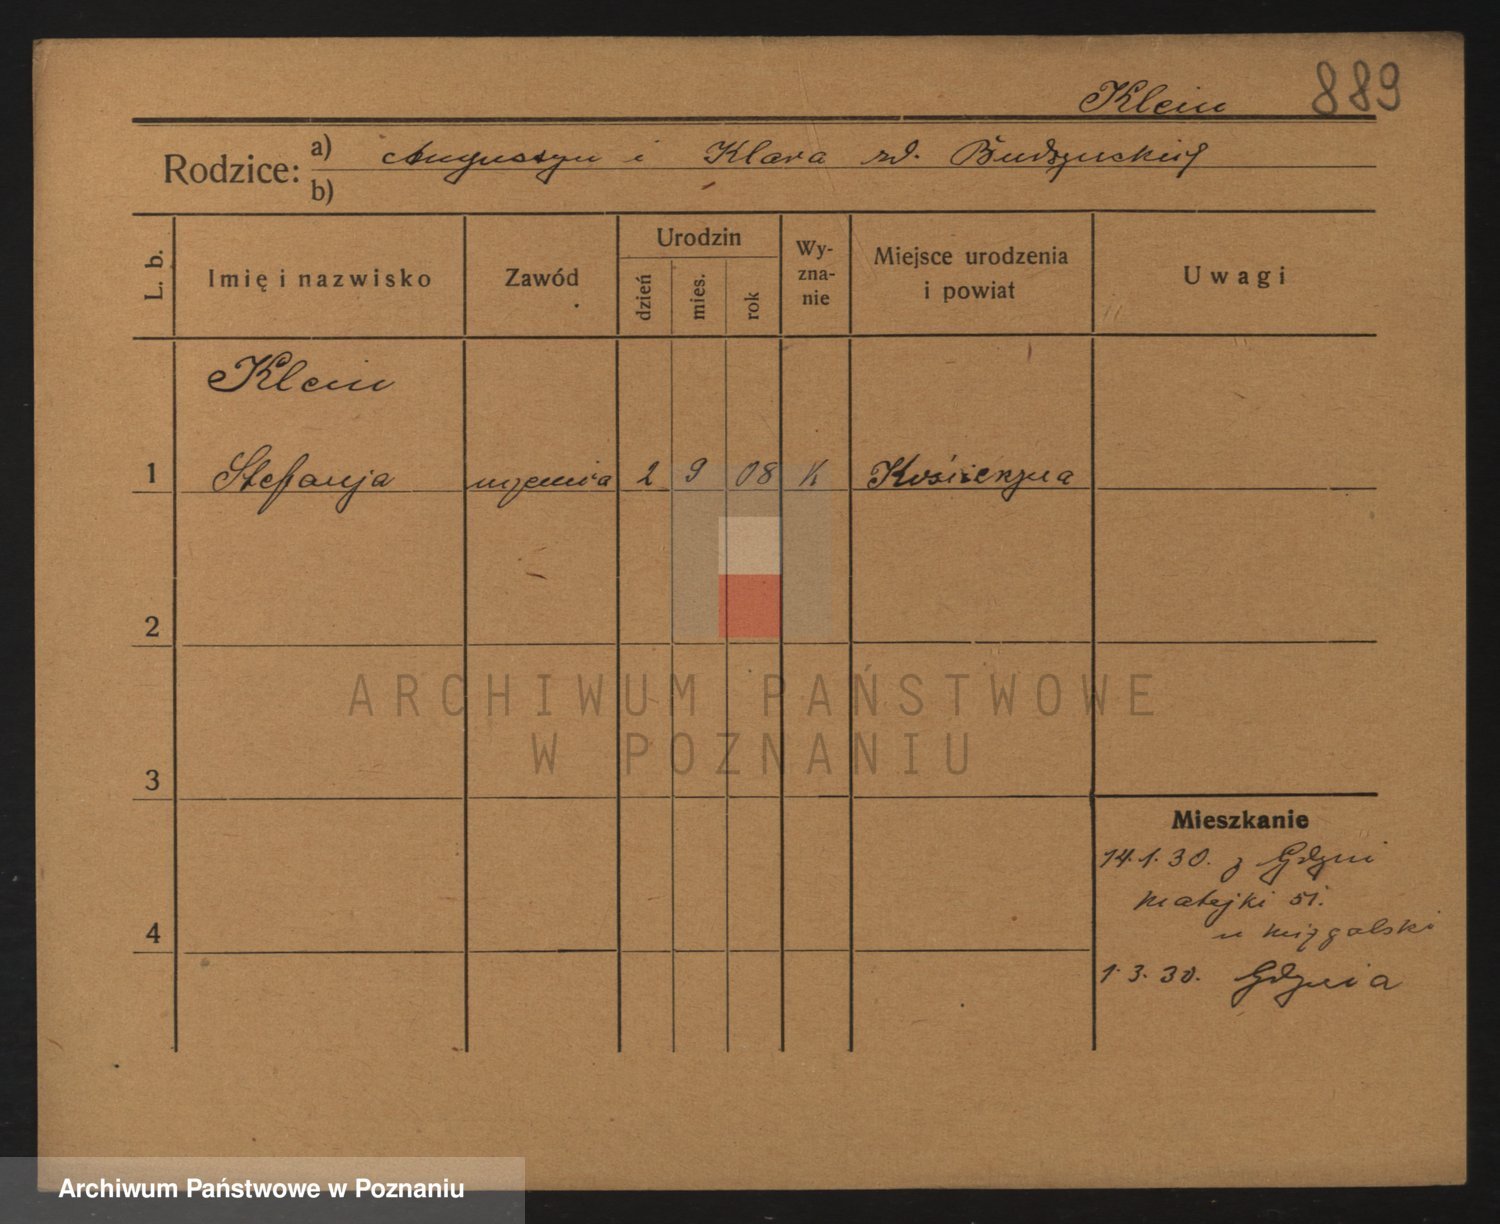 Klein 889
Rodzice: a) Augustyn i Klara zd.
b)
L. b. Imię i nazwisko Zawód Urodzin dzień mies. rok Wy-zna-nie Miejsce urodzenia i powiat Uwagi
Klein
1 Stefanja uczenica 2 9 08 K Kościerzyna
2
3
4
Mieszkanie
14.1.30. z Gdyni
Matejki 51.
u
1.3.30. Gdynia
ARCHIWUM PAŃSTWOWE
W POZNANIU
Archiwum Państwowe w Poznaniu